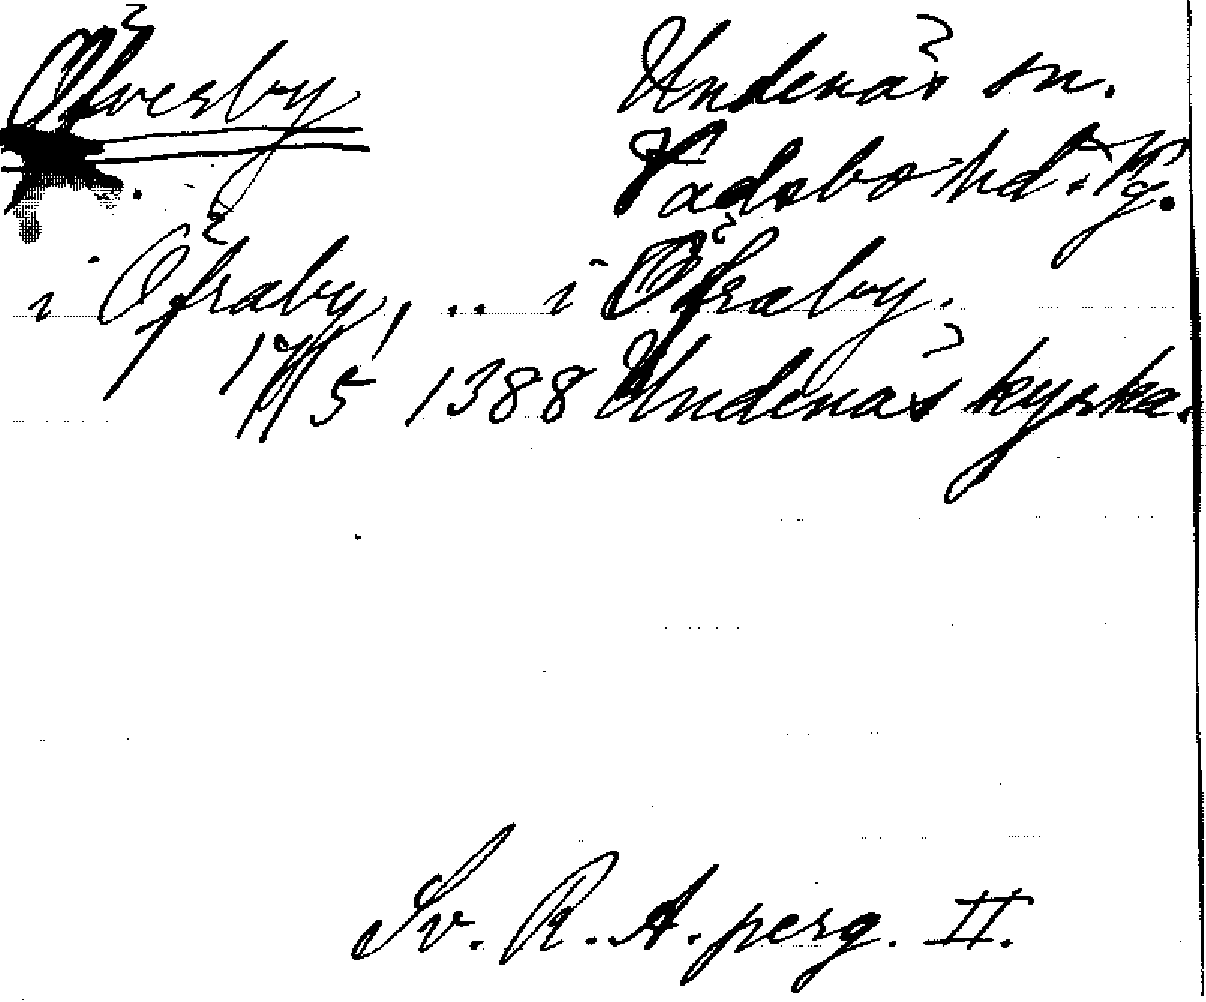 Öfverby Undenäs sn.
Vadsbo hd. Vg.
i Öfraby, .. i Öfraby.
17/5 1388 Undenäs kyrka.
Sv. R. A. perg. II.